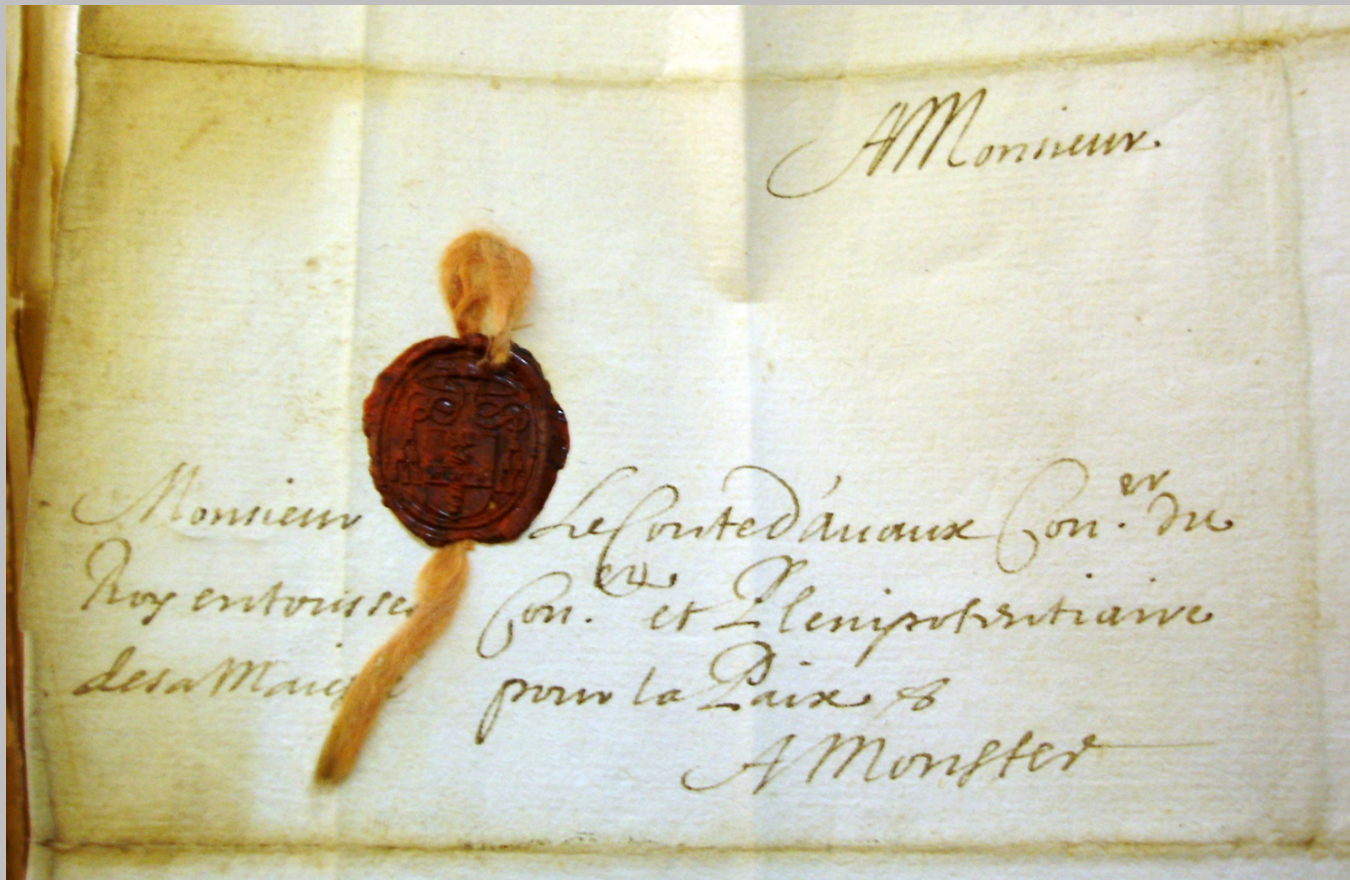 A Monsieur.
Monsieur Le Conte d'auaux Con.er du
Roy en tous ses Con.ers et Plenipotentiaire
de sa Maiesté pour la Paix &
A Monster